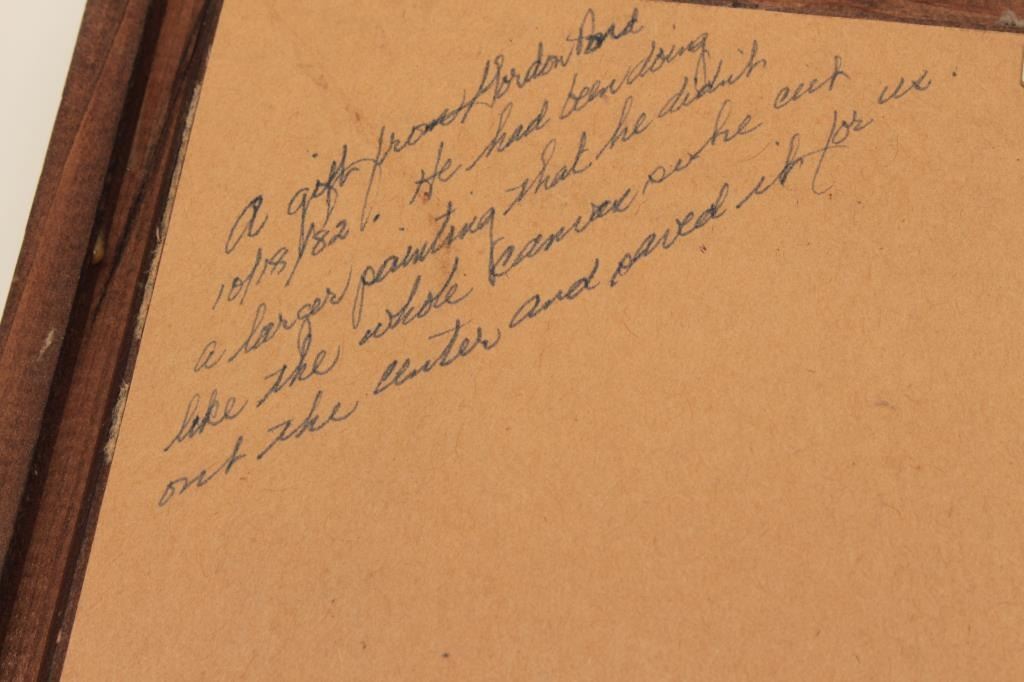 A gift from Gordon Pond
10/18/82. He had been doing
a larger painting that he didn't
like the whole canvas so he cut
out the center and saved it for us.